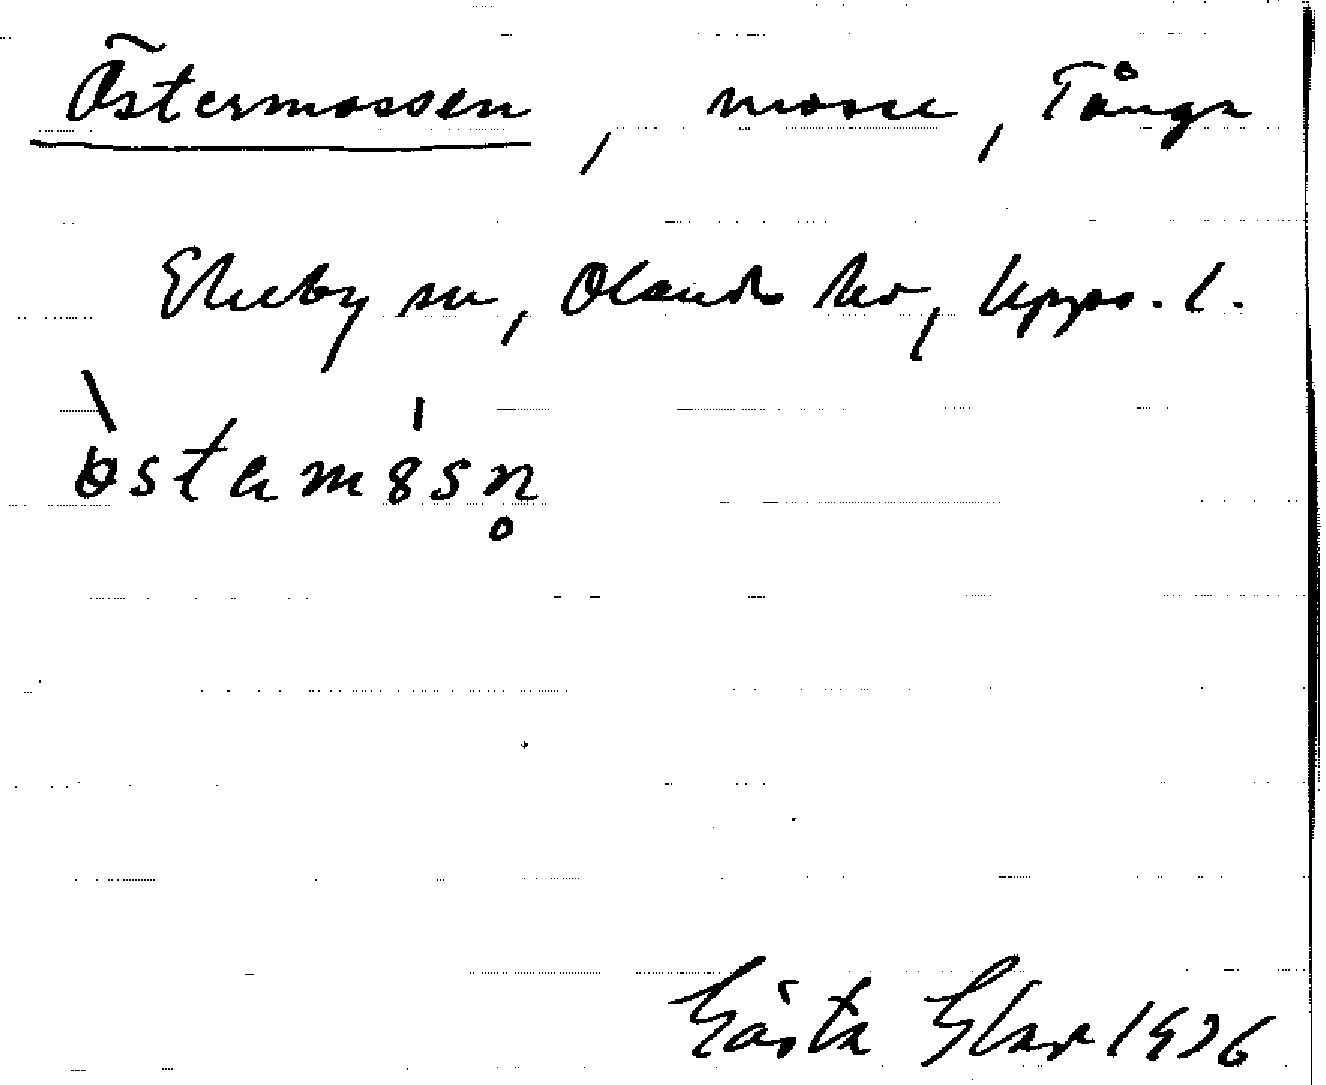 Östermossen, mosse, Tånga
Ekeby sn, Olands hd, Upps. l.
östamösn̥
Gösta Elar 1926